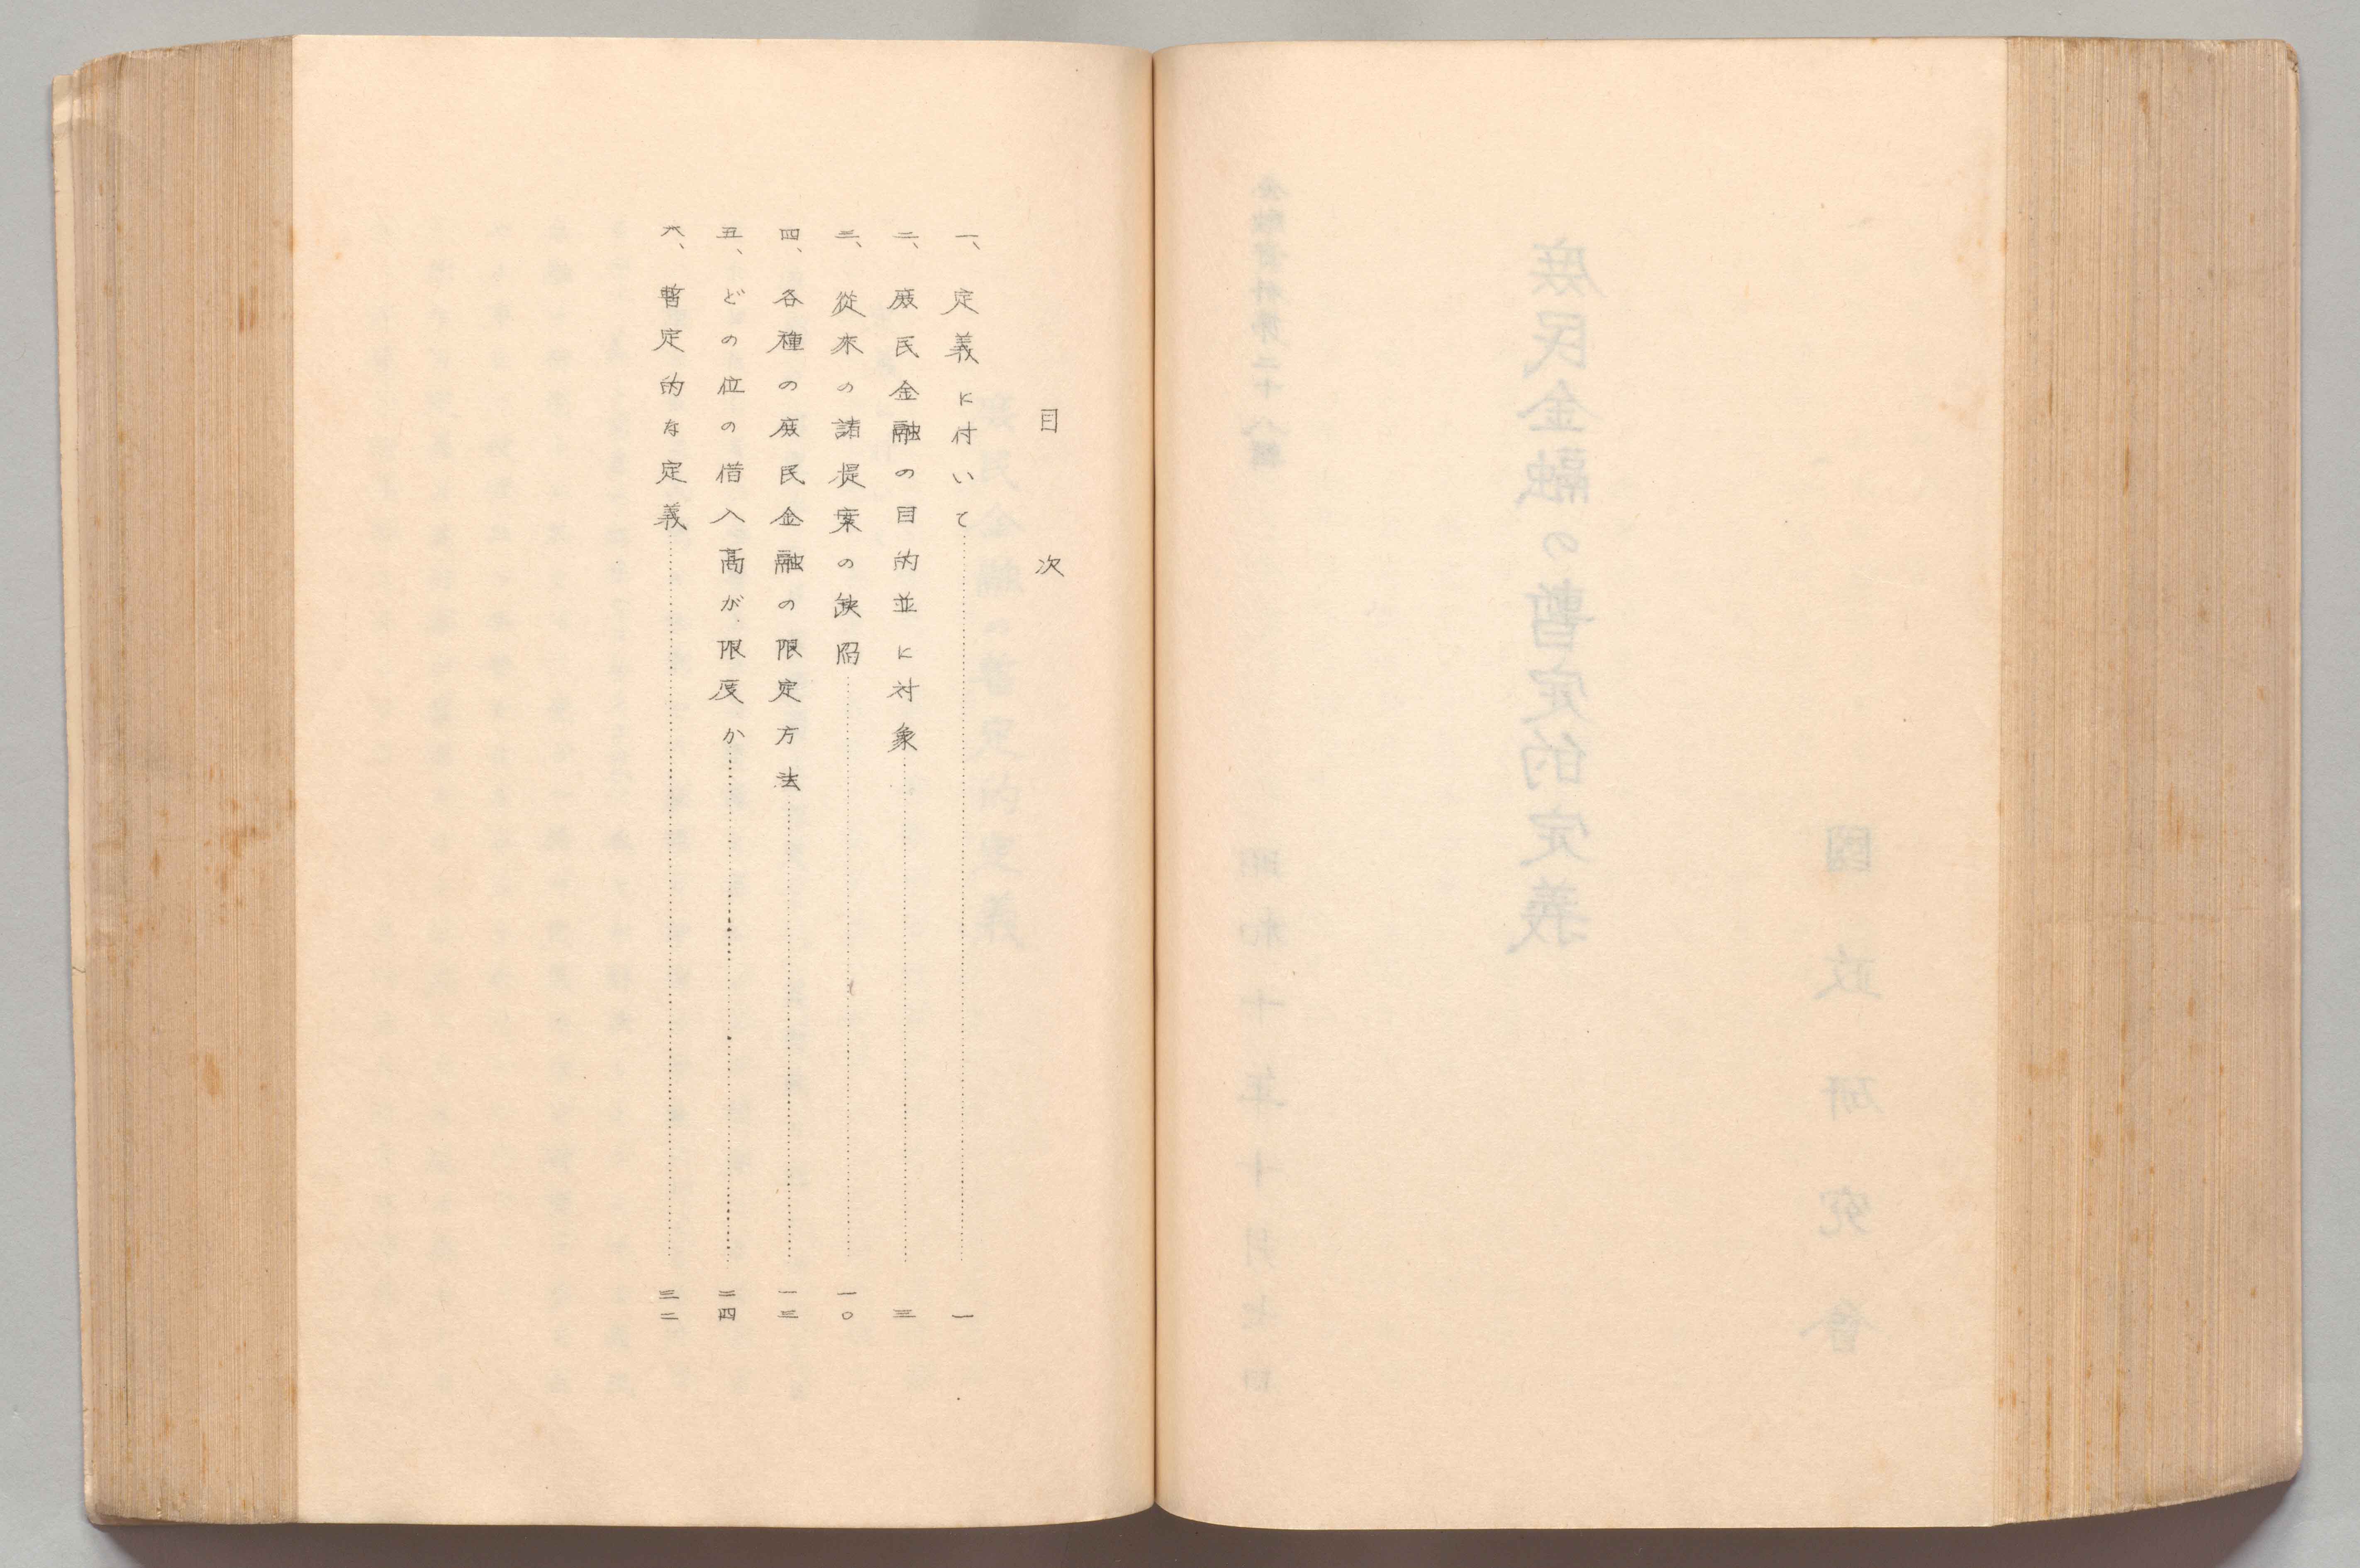 目次
一、定義に付いて……一
二、庶民金融の目的並に対象……三
三、從来の諸提案の缺陥……一〇
四、各種の庶民金融の限定方法……一三
五、どの位の借入高が限度か……二四
六、暫定的な定義……三二